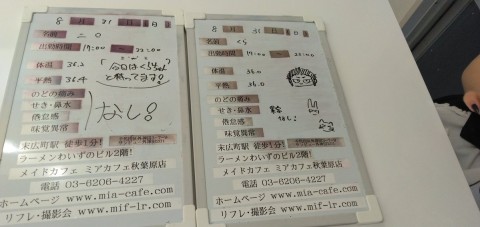 8 月 31 日 日
名前 ニ〇
出勤時間 17:00 ～ 22:00
体温 36.2
「今日はくらちゃん
と待ってます!」
平熱 36.4
のどの痛み
せき・鼻水
倦怠感
味覚異常
なし!
末広町駅 徒歩1分!
ラーメンわいずのビル2階!
メイドカフェ ミアカフェ秋葉原店
電話 03-6206-4227
ホームページ www.mia-cafe.com
リフレ・撮影会 www.mif-lr.com
8 月 31 日 日
名前 くら
出勤時間 17:00 ～ 22:00
体温 36.0
平熱 36.0
のどの痛み
せき・鼻水
倦怠感
味覚異常
なし
末広町駅 徒歩1分!
ラーメンわいずのビル2階!
メイドカフェ ミアカフェ秋葉原店
電話 03-6206-4227
ホームページ www.mia-cafe.com
リフレ・撮影会 www.mif-lr.com